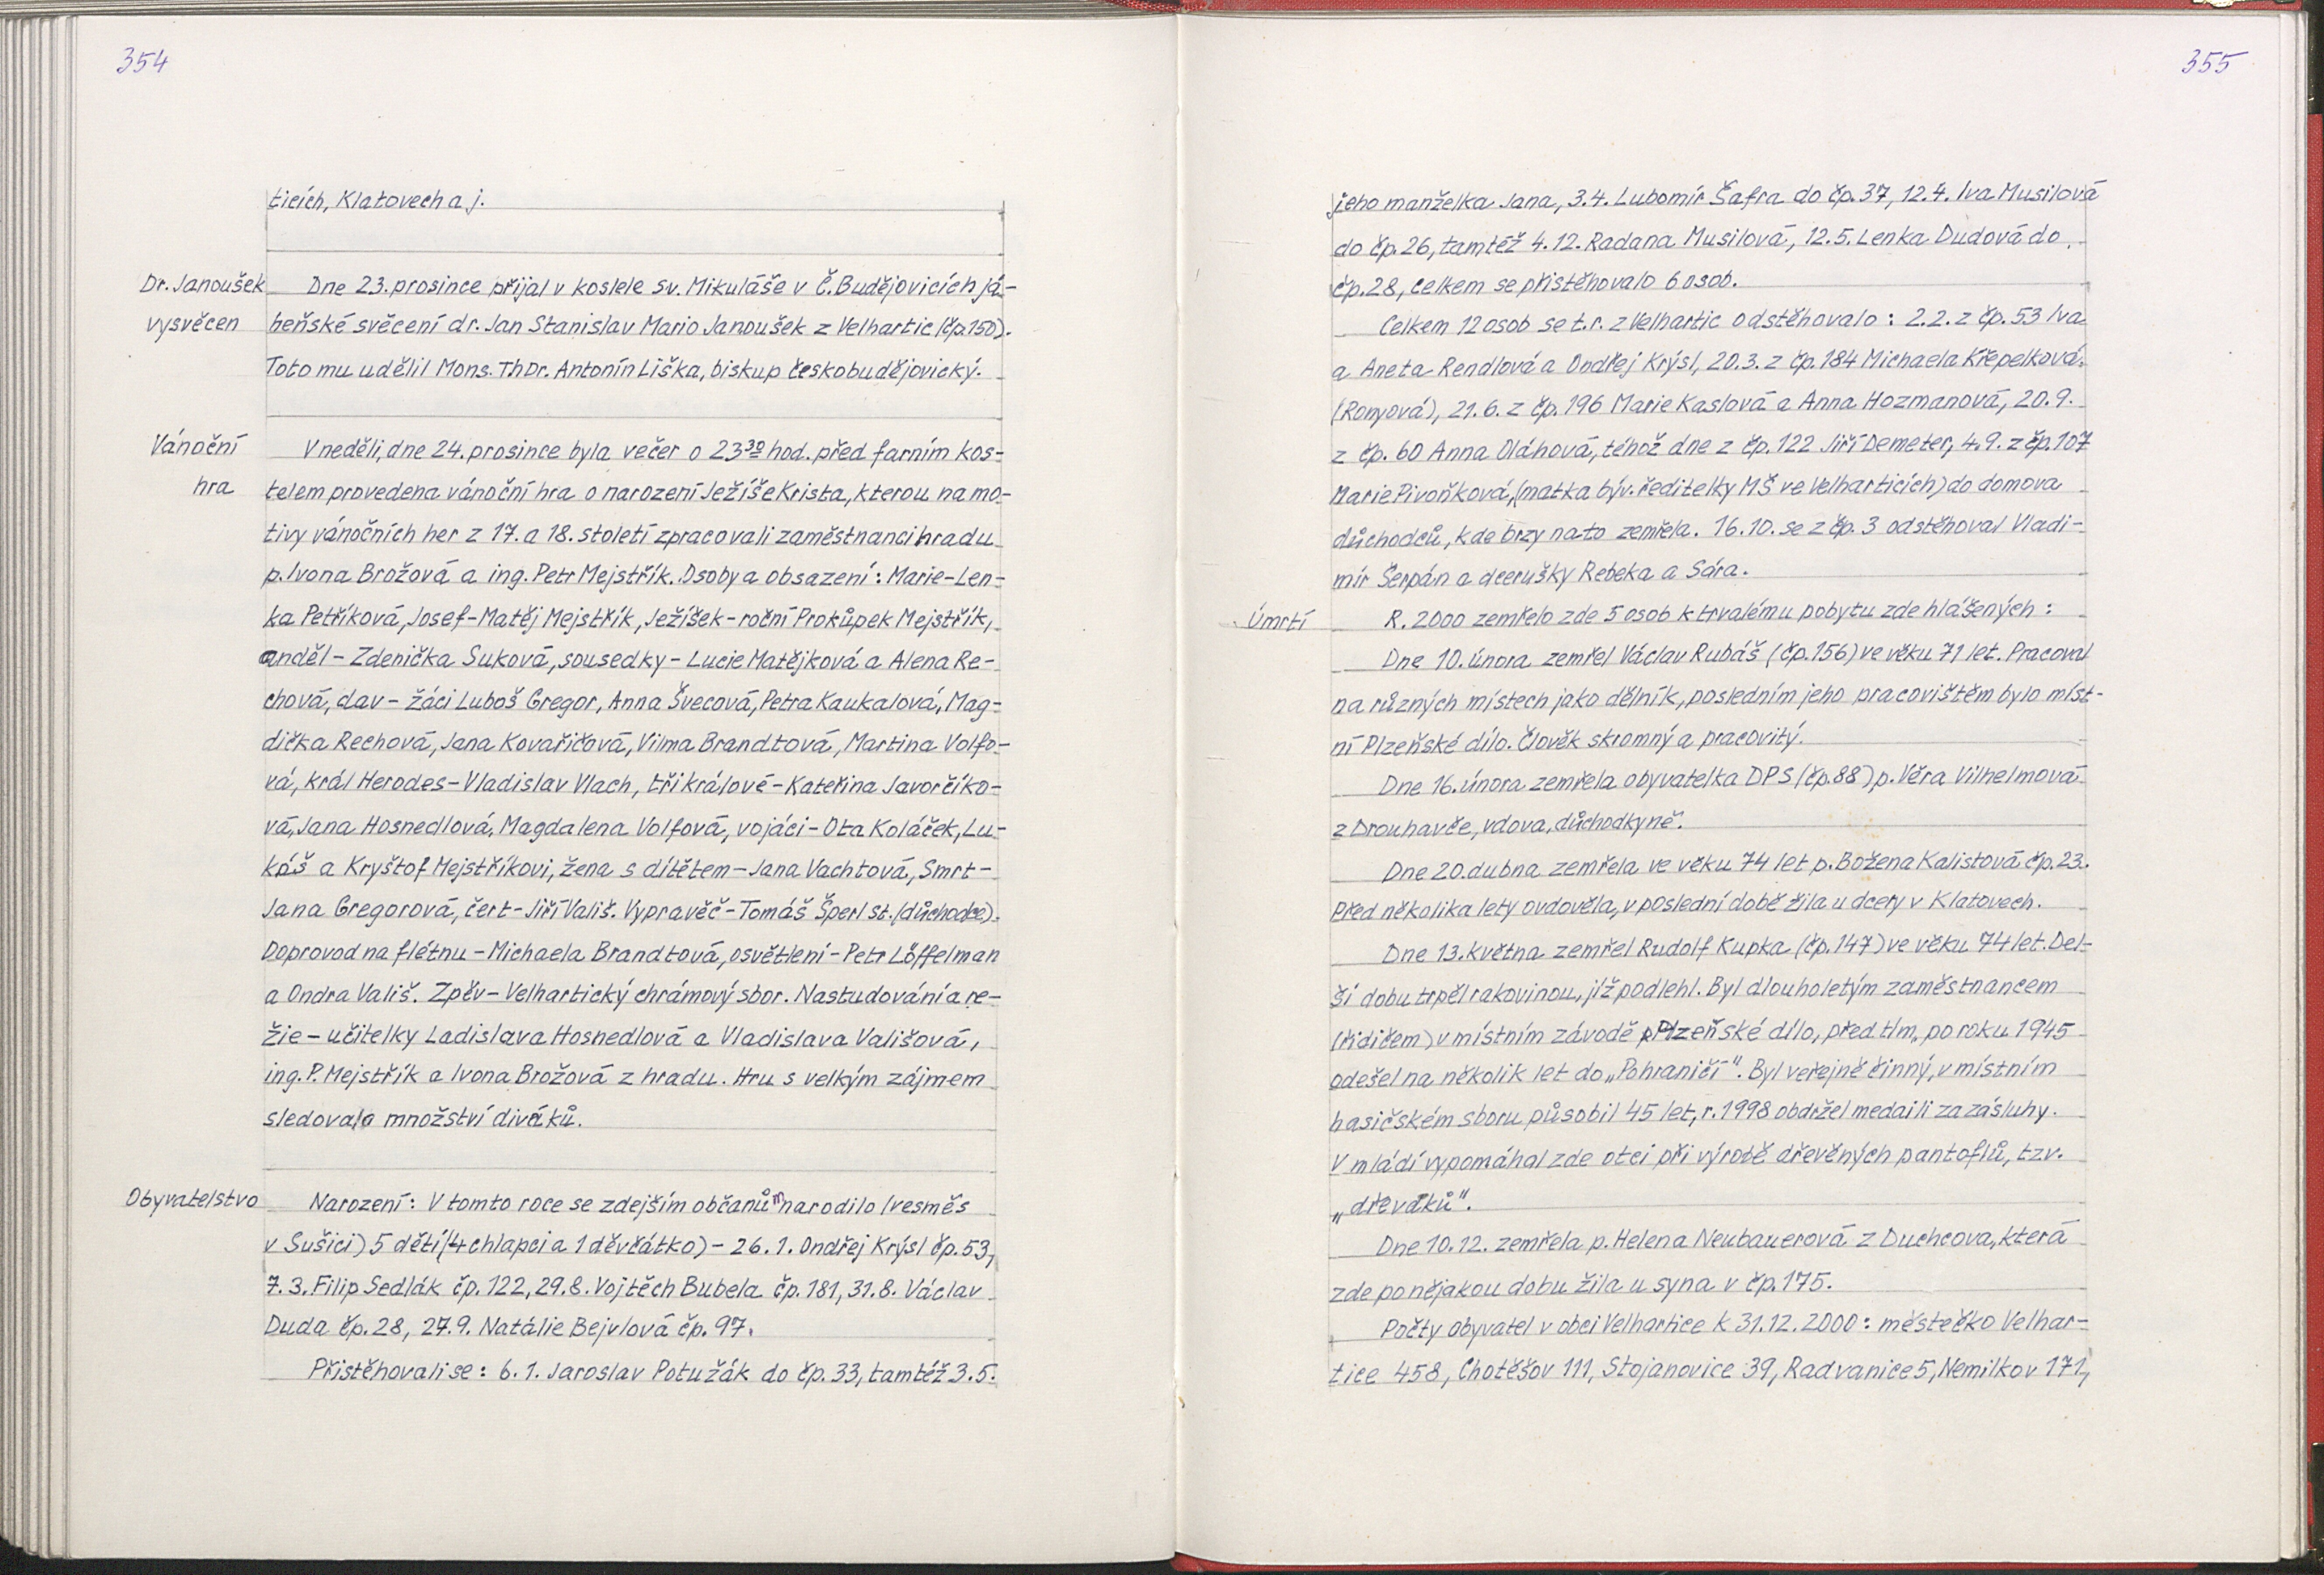 354
ticích, Klatovech a j.
Dr. Janoušek
vysvěcen
Dne 23. prosince přijal v kostele sv. Mikuláše v Č. Budějovicích já-
heňské svěcení dr. Jan Stanislav Mario Janoušek z Velhartic (čp. 150).
Toto mu udělil Mons. ThDr. Antonín Liška, biskup českobudějovický.
Vánoční
hra
V neděli, dne 24. prosince byla večer o 23³⁰ hod. před farním kos-
telem provedena vánoční hra o narození Ježíše Krista, kterou na mo-
tivy vánočních her z 17. a 18. století zpracovali zaměstnanci hradu
p. Ivona Brožová a ing. Petr Mejstřík. Osoby a obsazení: Marie - Len-
ka Petříková, Josef - Matěj Mejstřík, Ježíšek - roční Prokůpek Mejstřík,
anděl - Zdenička Suková, sousedky - Lucie Matějková a Alena Re-
chová, dav - žáci Luboš Gregor, Anna Švecová, Petra Kaukalová, Mag-
dička Rechová, Jana Kovaříčová, Vilma Brandtová, Martina Volfo-
vá, král Herodes - Vladislav Vlach, tři králové - Kateřina Javorčíko-
vá, Jana Hosnedlová, Magdalena Volfová, vojáci - Ota Koláček, Lu-
káš a Kryštof Mejstříkovi, žena s dítětem - Jana Vachtová, Smrt -
Jana Gregorová, čert - Jiří Vališ. Vypravěč - Tomáš Šperl st. (důchodce).
Doprovod na flétnu - Michaela Brandtová, osvětlení - Petr Löffelman
a Ondra Vališ. Zpěv - Velhartický chrámový sbor. Nastudování a re-
žie - učitelky Ladislava Hosnedlová a Vladislava Vališová,
ing. P. Mejstřík a Ivona Brožová z hradu. Hru s velkým zájmem
sledovalo množství diváků.
Obyvatelstvo
Narození: V tomto roce se zdejším občanům narodilo (vesměs
v Sušici) 5 dětí (4 chlapci a 1 děvčátko) - 26. 1. Ondřej Krýsl čp. 53,
7. 3. Filip Sedlák čp. 122, 29. 8. Vojtěch Bubela čp. 181, 31. 8. Václav
Duda čp. 28, 27. 9. Natálie Bejvlová čp. 97.
Přistěhovali se: 6. 1. Jaroslav Potužák do čp. 33, tamtéž 3. 5.
355
jeho manželka Jana, 3. 4. Lubomír Šafra do čp. 37, 12. 4. Iva Musilová
do čp. 26, tamtéž 4. 12. Radana Musilová, 12. 5. Lenka Dudová do
čp. 28, celkem se přistěhovalo 6 osob.
Celkem 12 osob se t. r. z Velhartic odstěhovalo: 2. 2. z čp. 53 Iva
a Aneta Rendlová a Ondřej Krýsl, 20. 3. z čp. 184 Michaela Křepelková
(Ronyová), 21. 6. z čp. 196 Marie Kaslová a Anna Hozmanová, 20. 9.
z čp. 60 Anna Oláhová, téhož dne z čp. 122 Jiří Demeter, 4. 9. z čp. 107
Marie Pivoňková, (matka býv. ředitelky MŠ ve Velharticích) do domova
důchodců, kde brzy na to zemřela. 16. 10. se z čp. 3 odstěhoval Vladi-
mír Šerpán a dcerušky Rebeka a Sára.
Úmrtí
R. 2000 zemřelo zde 5 osob k trvalému pobytu zde hlášených:
Dne 10. února zemřel Václav Rubáš (čp. 156) ve věku 71 let. Pracoval
na různých místech jako dělník, posledním jeho pracovištěm bylo míst-
ní Plzeňské dílo. Člověk skromný a pracovitý.
Dne 16. února zemřela obyvatelka DPS (čp. 88) p. Věra Vilhelmová
z Drouhavče, vdova, důchodkyně.
Dne 20. dubna zemřela ve věku 74 let p. Božena Kalistová čp. 23.
Před několika lety ovdověla, v poslední době žila u dcery v Klatovech.
Dne 13. května zemřel Rudolf Kupka (čp. 147) ve věku 74 let. Del-
ší dobu trpěl rakovinou, jíž podlehl. Byl dlouholetým zaměstnancem
(řidičem) v místním závodě Plzeňské dílo, před tím, po roku 1945
odešel na několik let do „Pohraničí". Byl veřejně činný, v místním
hasičském sboru působil 45 let, r. 1998 obdržel medaili za zásluhy.
V mládí vypomáhal zde otci při výrobě dřevěných pantoflů, tzv.
„dřeváků".
Dne 10. 12. zemřela p. Helena Neubauerová z Duchcova, která
zde po nějakou dobu žila u syna v čp. 175.
Počty obyvatel v obci Velhartice k 31. 12. 2000: městečko Velhar-
tice 458, Chotěšov 111, Stojanovice 39, Radvanice 5, Nemilkov 171,